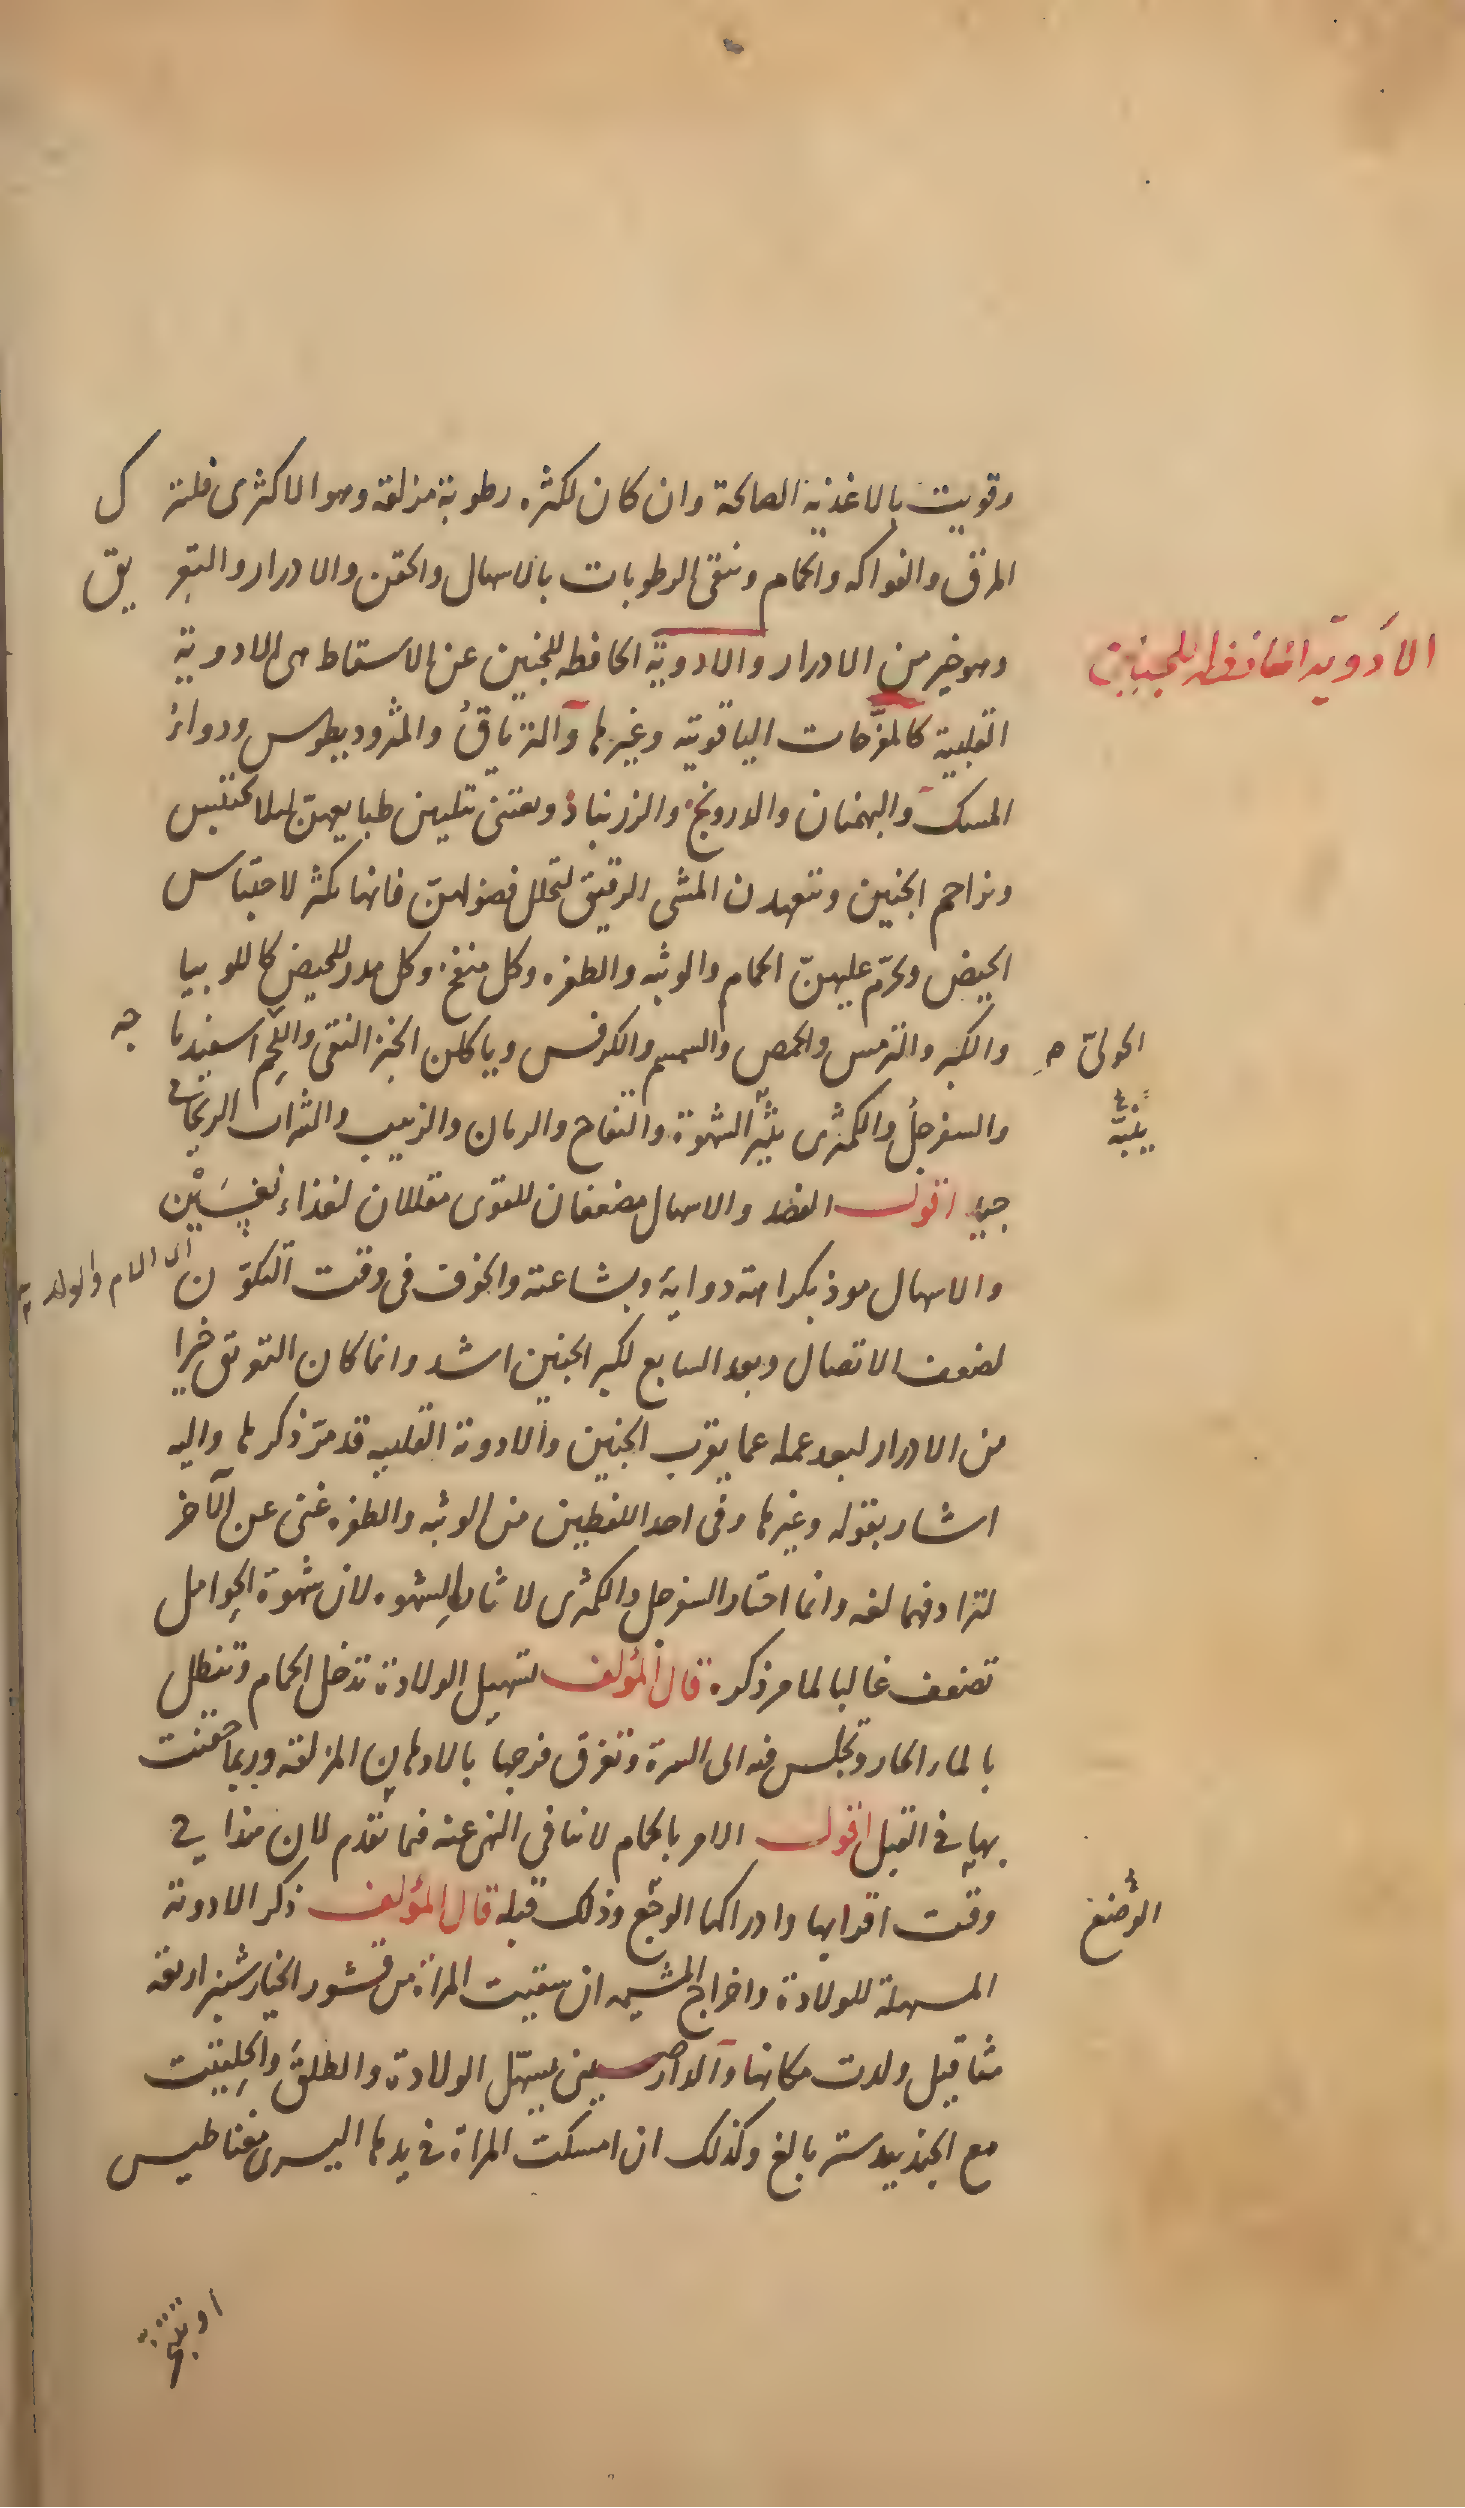 وقويت بالاغذية الصالحة وان كان لكثره رطوبة مزلقة وهو الاكثرى فلتترك
المرق والفواكه والحمام وتنقى الرطوبات بالاسهال والحقن والادرار والتعريق
وهو خير من الادرار والادوية الحافظه للجنين عن الاسقاط هى الادوية
الأدوية الحافظه للجنين
القلبية كالمفرّحات الياقوتيه وغيرها والترياق والمثروديطوس ودواء
المسك والبهمنان والدرونج والزرنباد ويعتنى بتليين طبايعهنّ ليلا تحتبس
وتزاحم الجنين ويتعهدن المشى الرقيق لتحلل فضولهنّ فانها تكثر لاحتباس
الحيض ويحرّم عليهنّ الحمام والوثبه والطفره وكل منفخ وكل مدر للحيض كاللوبيا
والكبر والترمس والحمص والسمسم والكرفس وياكلن الخبز النقى واللحم اسفيدباجه
الحولىّ
والسفرجل والكمثرى يثير الشهوة والتفاح والرمان والزبيب والشراب الريحانى
ينبّه
جيد اقول الفصد والاسهال مضعفان للقوى مقللان لغذاء نفسَيْن
اى الام والولد
والاسهال موذ بكراهة دوايه وبشاعته والخوف فى وقت التكون
لضعف الاتصال وبعد السابع لكبر الجنين اشد وانما كان التعريق خيرا
من الادرار لبعد عمله عما يقرب الجنين والادوية القلبيه قد مرّ ذكرها واليه
اشار بقوله وغيرها وفى احد اللفظين من الوثبه والطفره غنى عن الآخر
لترادفهما لغه وانما اختار السفرجل والكمثرى لاثارة الشهوه لان شهوة الحوامل
تضعف غالبا لما مر ذكره قال المؤلف لتسهيل الولادة تدخل الحمام وتنطل
بالماء الحار وتجلس فيه الى السرة وتعرق فرجها بالادهان المزلقه وربما حقنت
بها فى القبل اقول الامر بالحمام لا ينافى النهى عنه فيما تقدم لان هذا فى
وقت اقرابها وادراكها الوجع وذلك قبله قال المؤلف ذكر الادوية
الوضع
المسهلة للولادة واخراج المشيمه ان سقيت المراة من قشور الخيارشنبر اربعة
مثاقيل ولدت مكانها والدارصينى يسهّل الولادة والطلق والحلتيت
مع الجندبيدستر بالغ وكذلك ان امسكت المراة فى يدها اليسرى مغناطيس